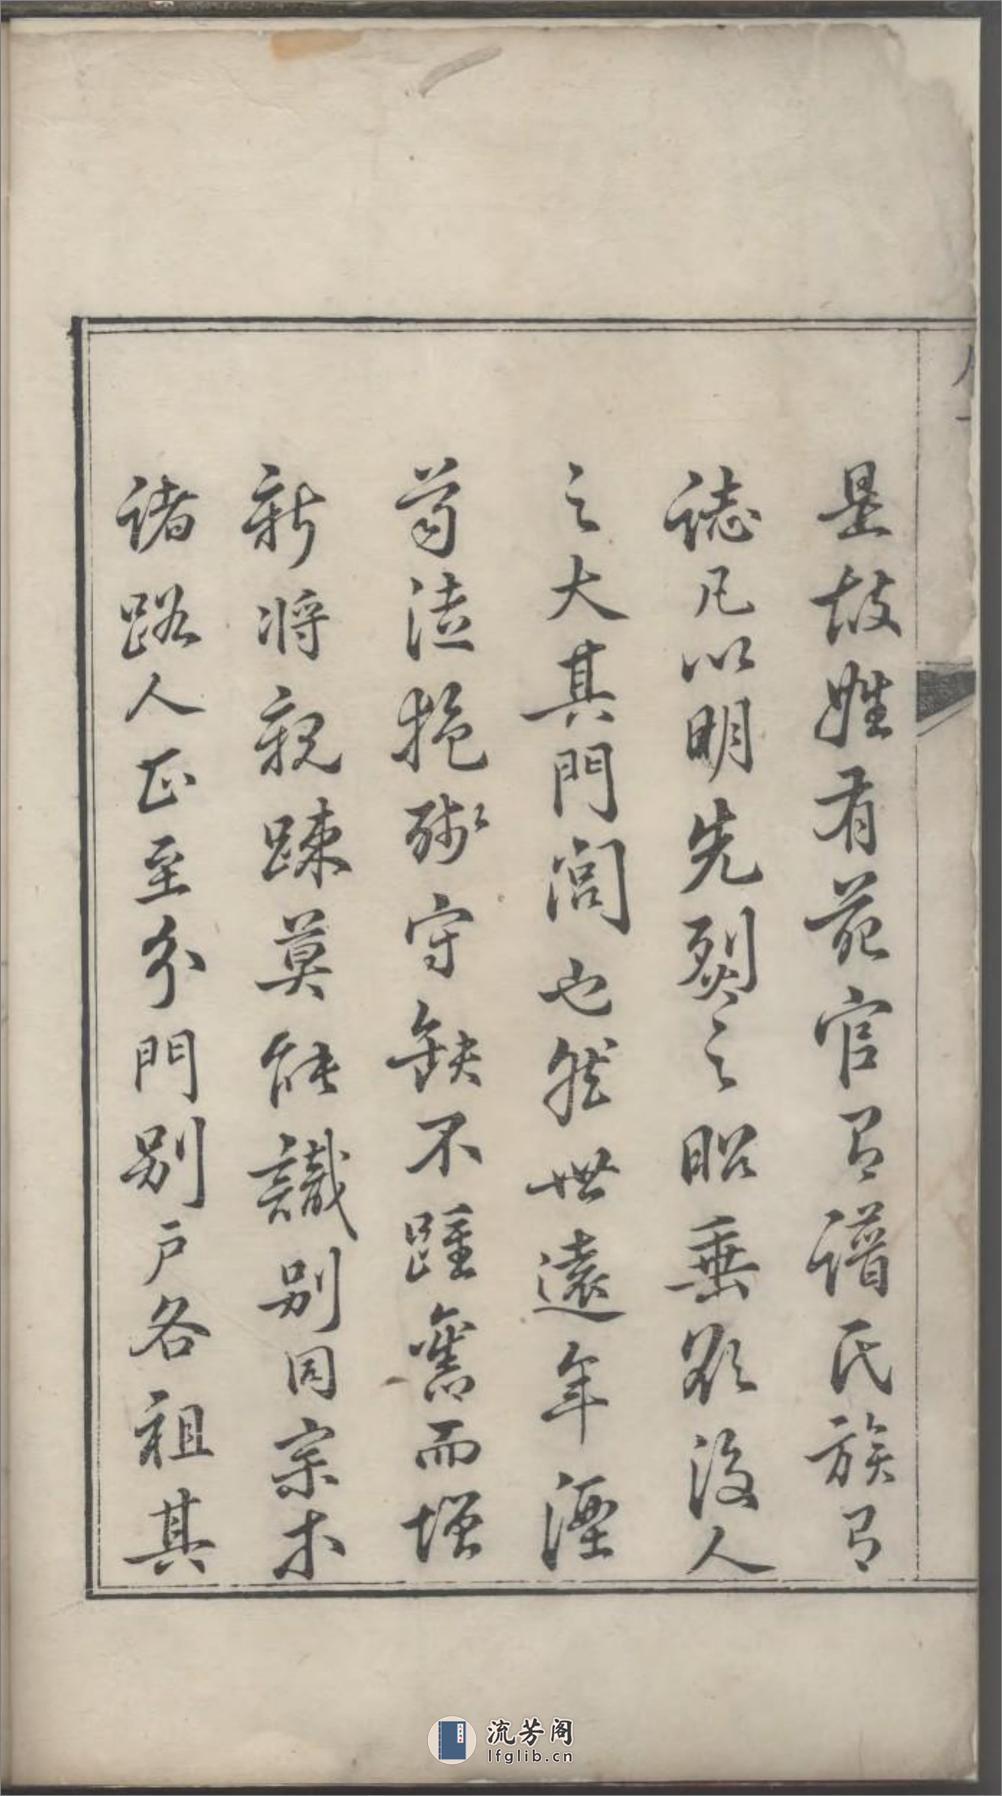 是故姓有苑官有譜氏族有
誌凡以明先烈之昭垂欲後人
之大其門閭也然世遠年湮
苟徒抱殘守缺不踵舊而增
新將親疎莫能識別同宗末
諸路人正至分門別戶各祖其
流芳阁
lfglib.cn